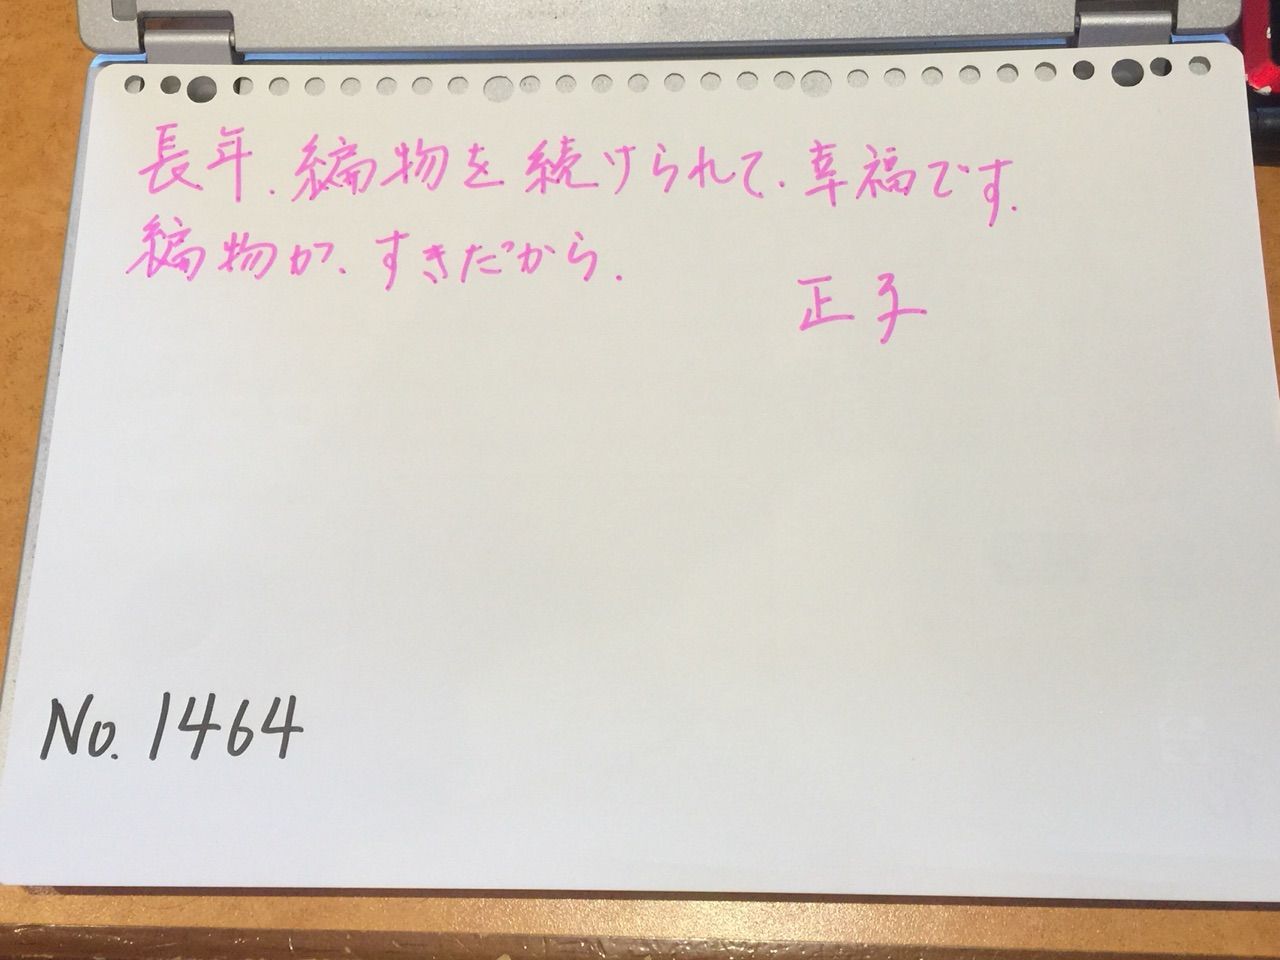 長年、編物を続けられて、幸福です.
編物が、すきだから.
正子
No. 1464